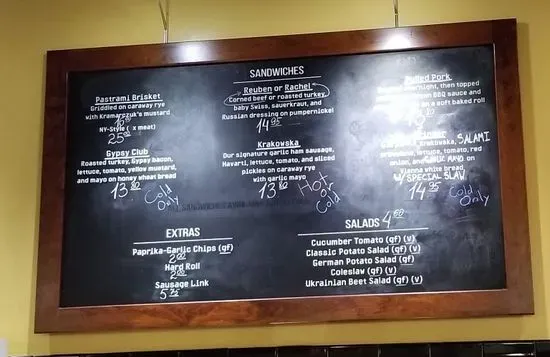 SANDWICHES
Pastrami Brisket
Griddled on caraway rye
with Kramarczuk's mustard
NY-Style (x meat)
Gypsy Club
Roasted turkey, Gypsy bacon,
lettuce, tomato, yellow mustard,
and mayo on honey wheat bread
13.80
Cold Only
Reuben or Rachel
Corned beef or roasted turkey,
baby Swiss, sauerkraut, and
Russian dressing on pumpernickel
14
Krakowska
Our signature garlic ham sausage,
Havarti, lettuce, tomato, and sliced
pickles on caraway rye
with garlic mayo
13.80
Hot or Cold
Pulled Pork
overnight, then topped
BBQ sauce and
on a soft baked roll
Krakowska, SALAMI
lettuce, tomato, red
onion, and GARLIC MAYO on
Vienna white bread
W/ SPECIAL SLAW
14.95
Cold Only
EXTRAS
Paprika-Garlic Chips (gf)
2.00
Hard Roll
2.00
Sausage Link
5.75
SALADS 4
Cucumber Tomato (gf) (v)
Classic Potato Salad (gf)
German Potato Salad (gf)
Coleslaw (gf) (v)
Ukrainian Beet Salad (gf) (v)